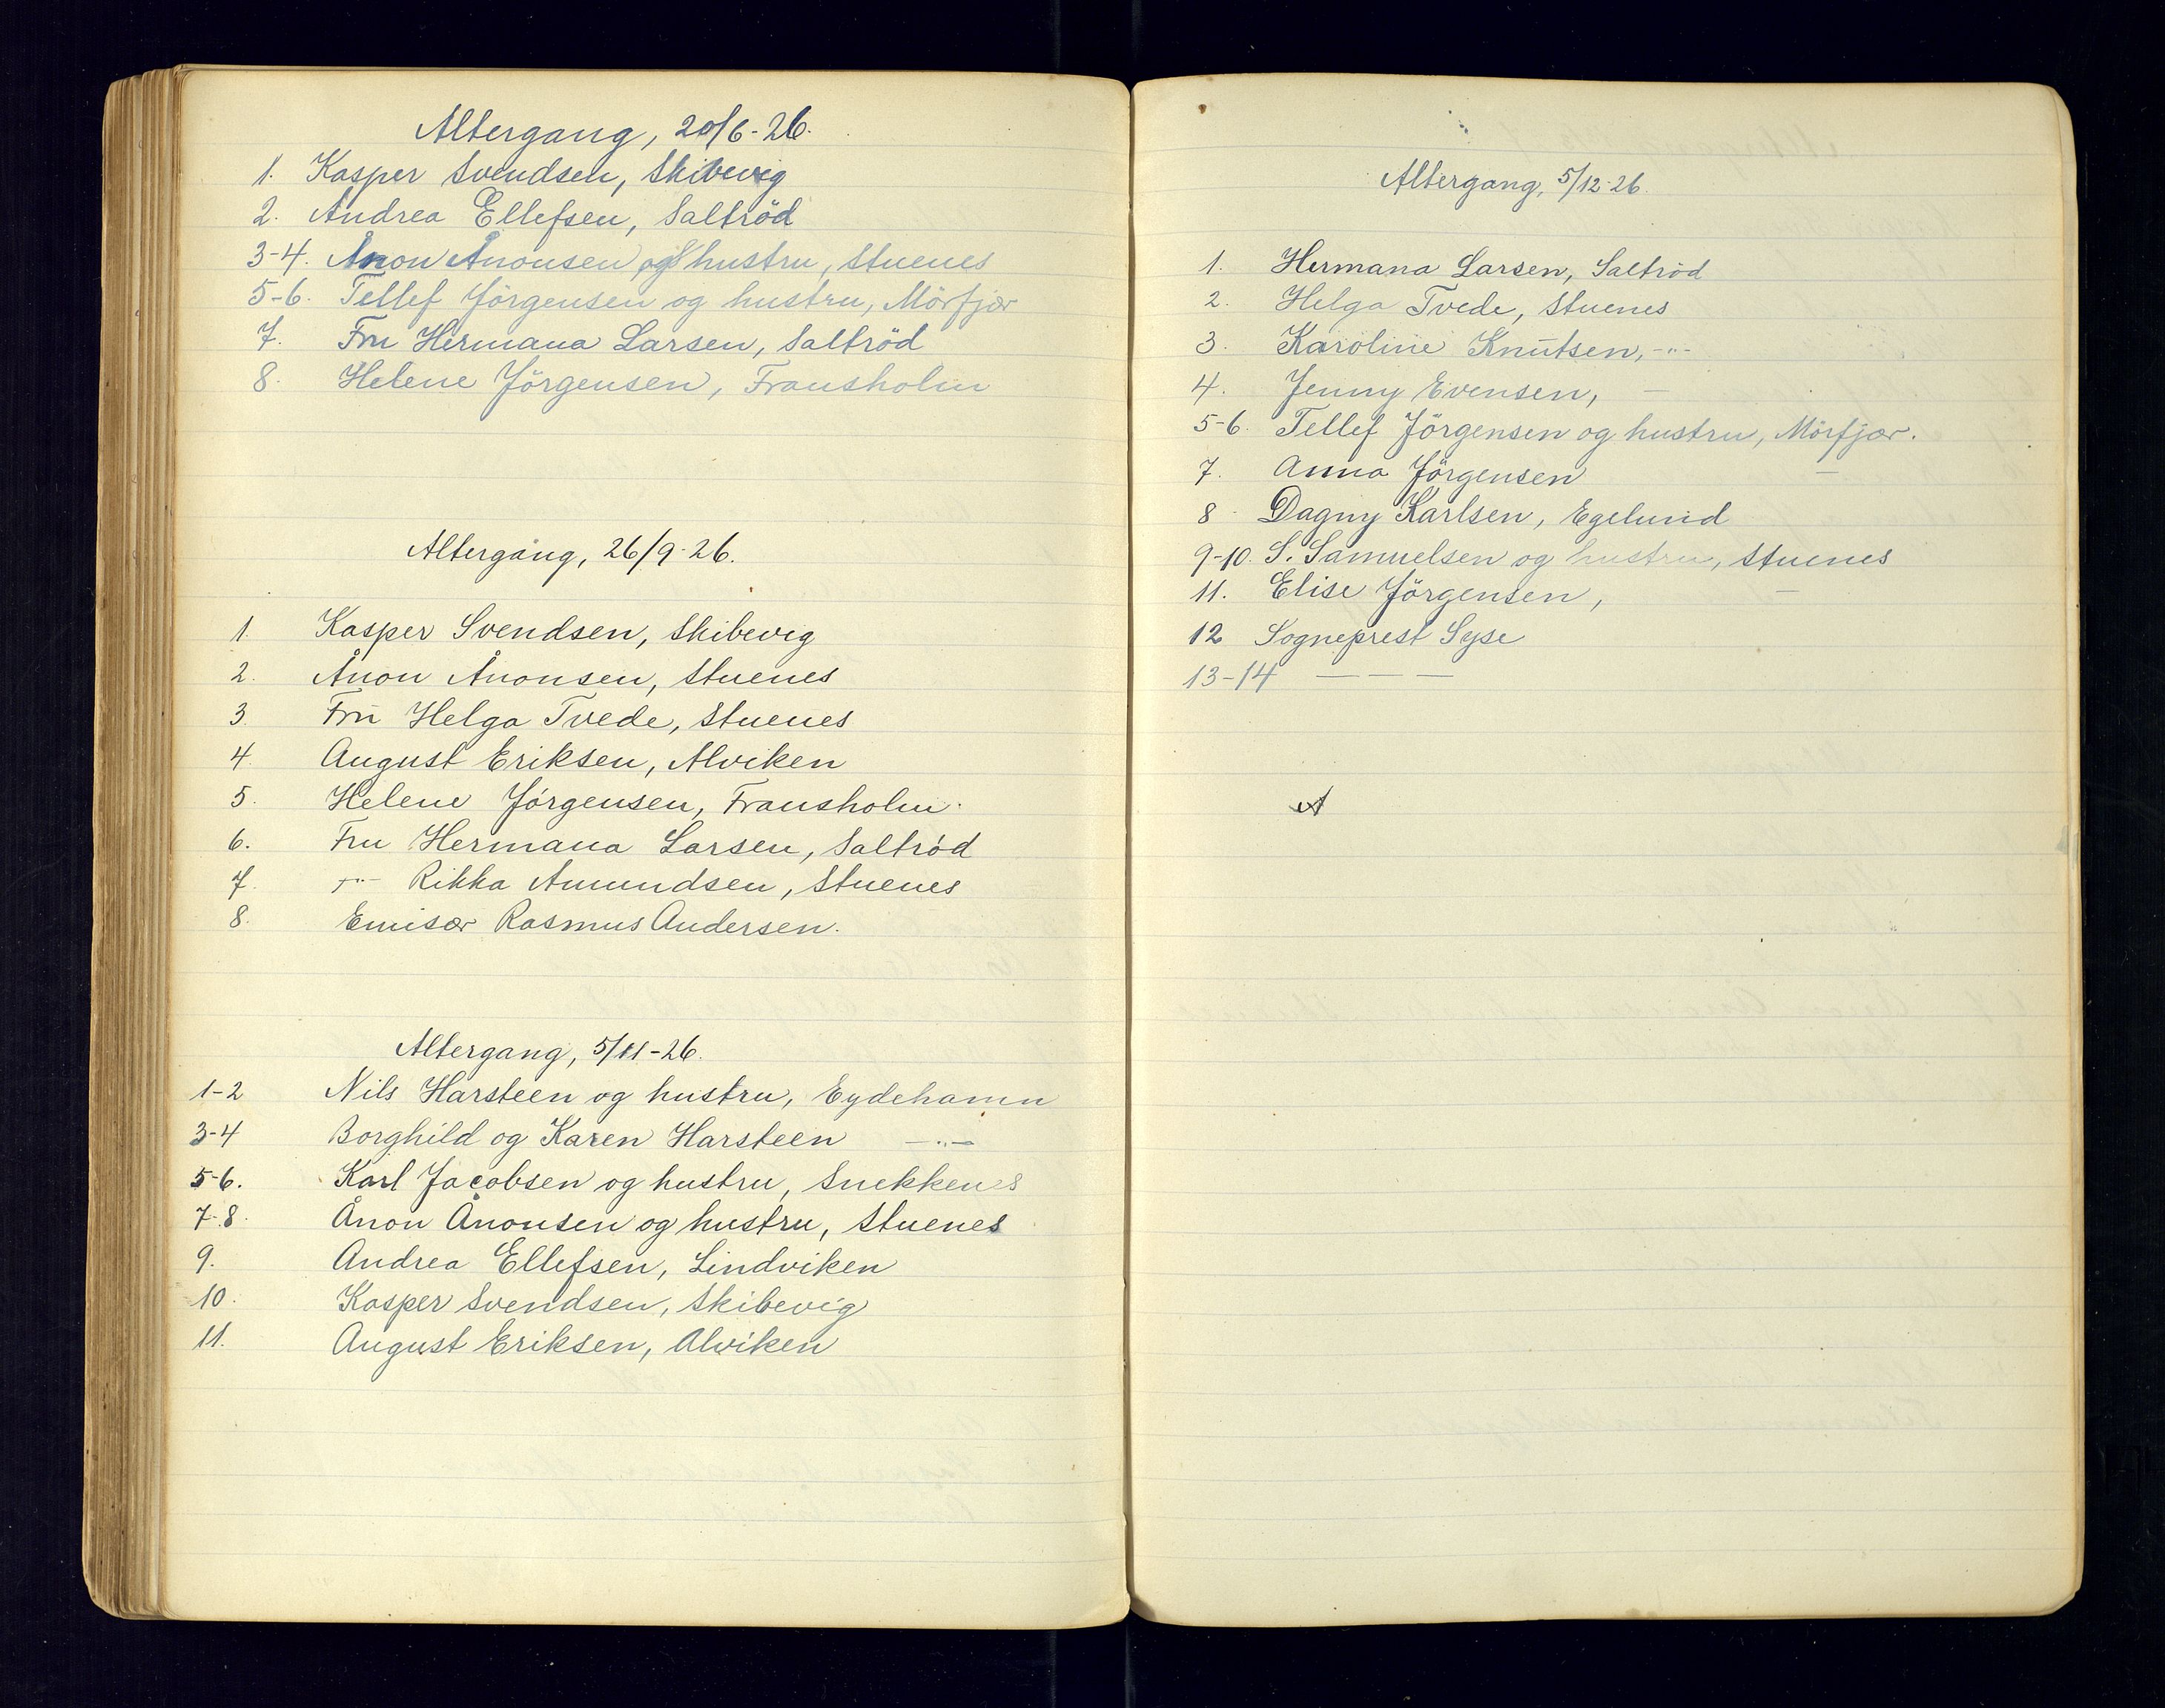 Altergang, 20/6-26.
1. Kasper Svendsen, Skibevig
2. Andrea Ellefsen, Saltröd
3-4. Ånon Ånonsen og hustru, Stuenes
5-6. Tellef Jörgensen og hustru, Mörfjær
7. Fru Hermana Larsen, Saltröd
8. Helene Jörgensen, Fransholm
Altergang, 26/9-26.
1. Kasper Svendsen, Skibevig
2. Ånon Ånonsen, Stuenes
3 Fru Helga Tvede, Stuenes
4 August Eriksen, Alviken
5. Helene Jörgensen, Fransholm.
6. Fru Hermana Larsen, Saltröd
7. -"- Rikka Amundsen, Stuenes
8. Emisær Rasmus Andersen.
Altergang, 5/11-26.
1-2 Nils Harsteen og hustru, Eydehamn
3-4 Borghild og Karen Harsteen -"-
5-6. Karl Jacobsen og hustru, Snekkenes
7-8. Ånon Ånonsen og hustru, Stuenes
9. Andrea Ellefsen, Lindviken
10. Kasper Svendsen, Skibevig
11. August Eriksen, Alviken
Altergang, 5/12-26.
1. Hermana Larsen, Saltröd
2. Helga Tvede, Stuenes
3. Karoline Knutsen, -"-
4. Jenny Evensen, -
5-6. Tellef Jörgensen og hustru, Mörfjær.
7. Anna Jörgensen -
8 Dagny Karlsen, Egelund
9-10. S. Samuelsen og hustru, Stuenes
11. Elise Jörgensen, -
12 Sogneprest Syse
13-14 - - -
A